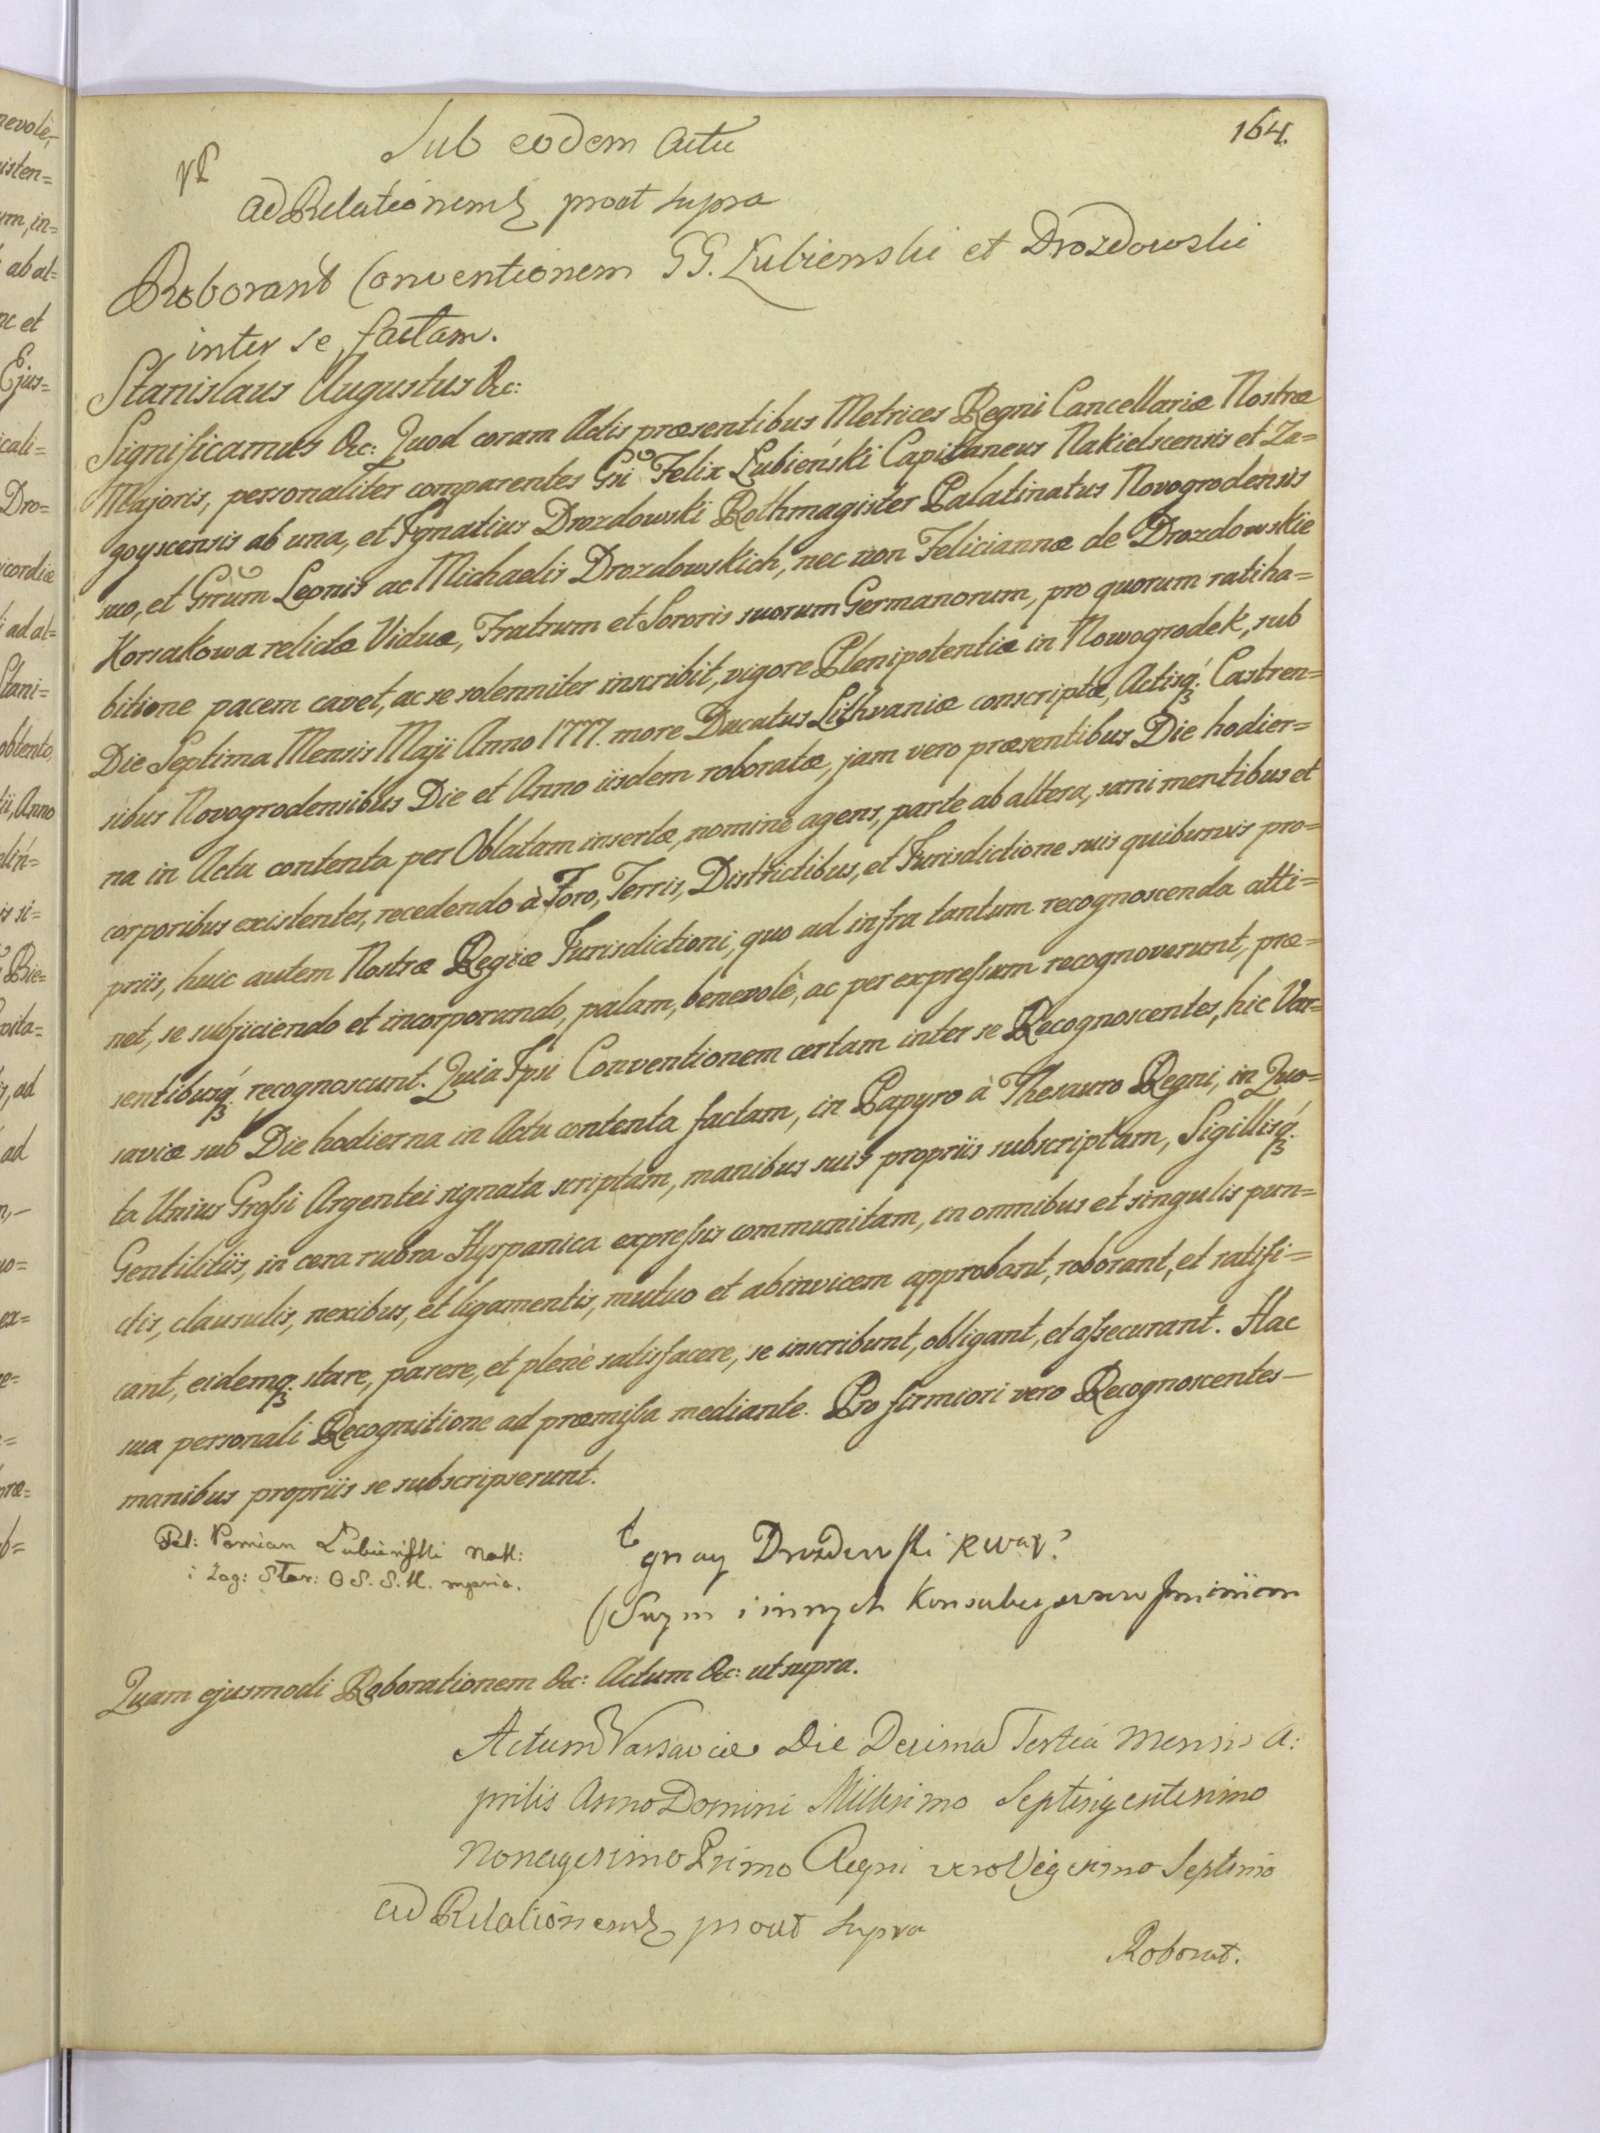 164.
Sub eodem Actu
ad Relationem prout supra
Roborant Conventionem GG. Łubienski et Drozdowski
inter se factam.
Stanislaus Augustus &c:
Significamus &c: Quod coram Actis præsentibus Metrices Regni Cancellariæ Nostræ
Majoris, personaliter comparentes Gsi Felix Łubieński Capitaneus Nakielscensis et Za=
goyscensis ab una, et Ignatius Drozdowski Rothmagister Palatinatus Novogrodensis
suo, et Grrum Leonis ac Michaelis Drozdowskich, nec non Feliciannæ de Drozdowskie
Korsakowa relictæ Viduæ, Fratrum et Sororis suorum Germanorum, pro quorum ratiha=
bitione pacem cavet, ac se solenniter inscribit, vigore Plenipotentiæ in Nowogrodek, sub
Die Septima Mensis Maji Anno 1777. more Ducatus Lithvaniæ conscriptæ, Actisq; Castren=
sibus Novogrodensibus Die et Anno iisdem roboratæ, jam vero præsentibus Die hodier=
na in Actu contenta per Oblatam insertæ, nomine agens, parte ab altera, sani mentibus et
corporibus existentes, recedendo à Foro, Terris, Districtibus, et Jurisdictione suis quibusvis pro=
priis, huic autem Nostræ Regiæ Jurisdictioni, quo ad infra tantum recognoscenda atti=
net, se subjiciendo et incorporando, palam, benevolè, ac per expressum recognoverunt, præ=
sentibusq; recognoscunt. Quia Ipsi Conventionem certam inter se Recognoscentes, hic Var=
saviæ sub Die hodierna in Actu contenta factam, in Papyro à Thesauro Regni, in Quo=
ta Unius Grossi Argentei signata scriptam, manibus suis propriis subscriptam, Sigillisq;
Gentilitiis, in cera rubra Hyspanica expressis communitam, in omnibus et singulis pun=
ctis, clausulis, nexibus, et ligamentis, mutuo et abinvicem approbant, roborant, et ratifi=
cant, eidemq; stare, parere, et plenè satisfacere, se inscribunt, obligant, et assecurant. Hac
sua personali Recognitione ad præmissa mediante. Pro firmiori vero Recognoscentes
manibus propriis se subscripserunt.
Fel: Pomian Łubieński Nakl:
i Zag: Star: O S. S. K. mpria.
Ignacy Drozdowski
Swym i innych
Quam ejusmodi Roborationem &c: Actum &c: ut supra.
Actum Varsaviæ Die Decima Tertia Mensis A:
prilis Anno Domini Millesimo Septingentesimo
Nonagesimo Primo Regni vero Vigesimo Septimo
ad Relationem prout supra
Roborat.